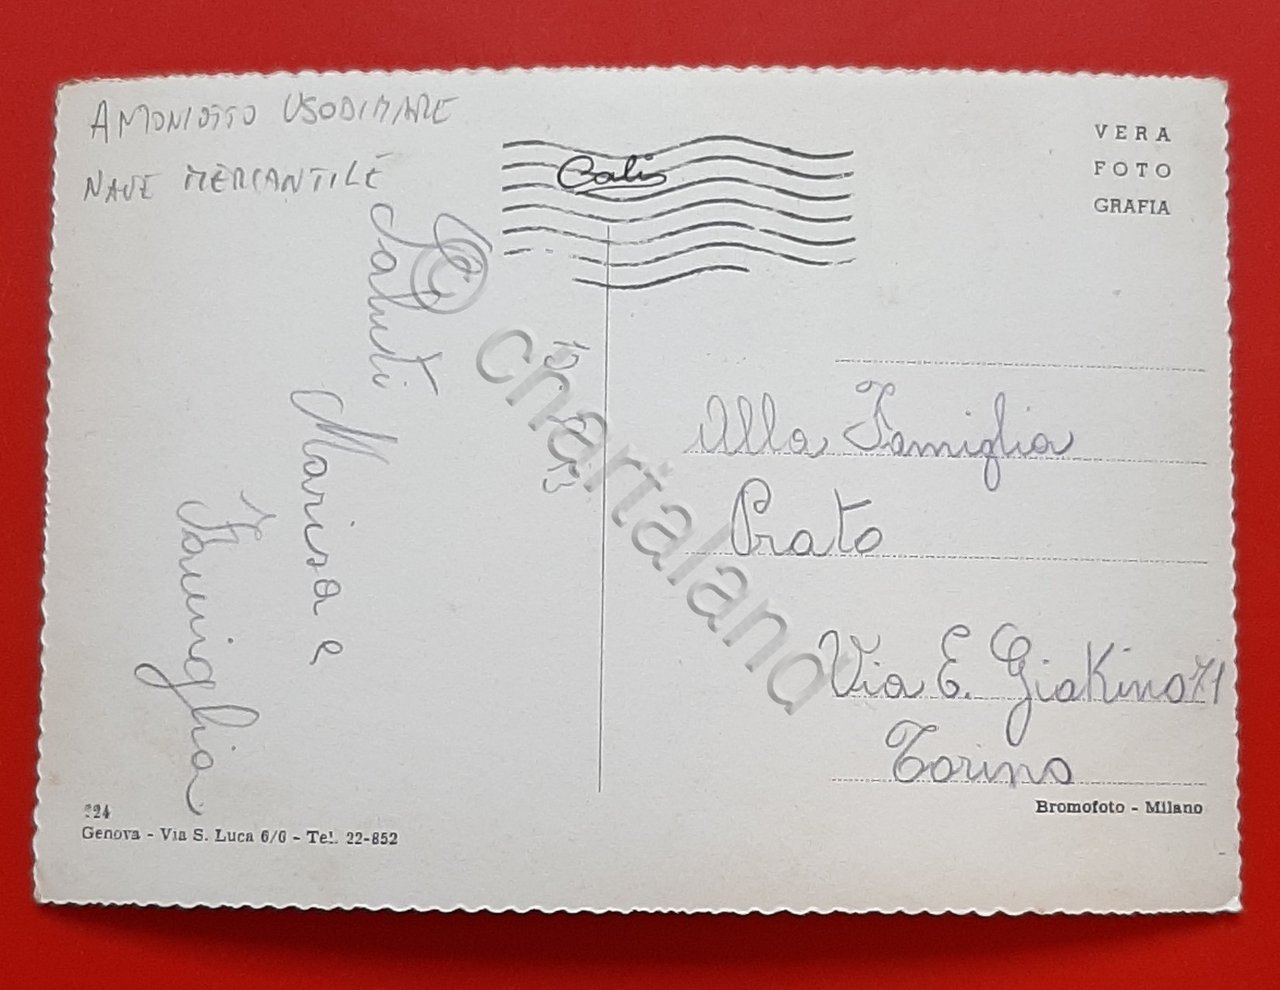 AMONIOTTO USODIMARE
NAVE MERCANTILE
Saluti
Marisa e
Famiglia
VERA
FOTO
GRAFIA
Alla Famiglia
Prato
Via E. Giakino 71
Torino
24
Genova - Via S. Luca 6/6 - Tel. 22-852
Bromofoto - Milano
© chartaland